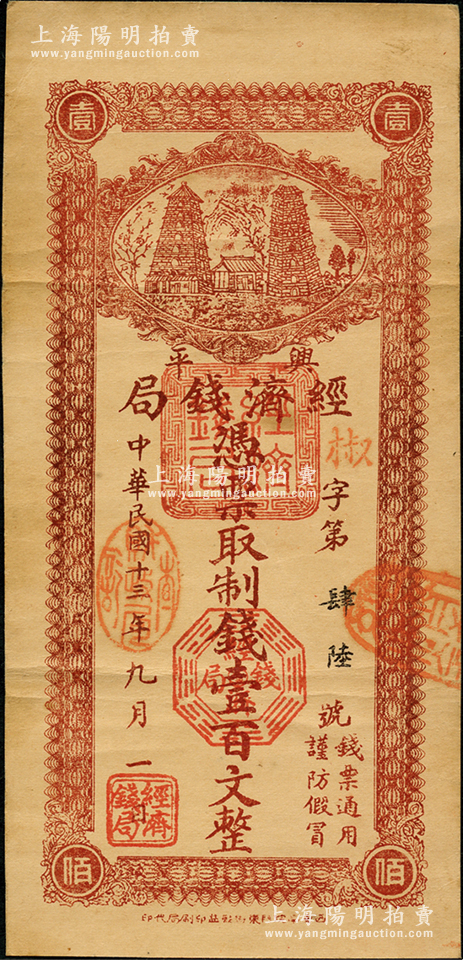 上海陽明拍賣
www.yangmingauction.com
壹
壹
興平
經濟錢局
椒字第肆陸號
憑票取制錢壹百文整
中華民國十三年九月一日
錢票通用
謹防假冒
經濟錢局
錢局
上海陽明拍賣
www.yangmingauction.com
佰
佰
印代局刷印
上海陽明拍賣
www.yangmingauction.com